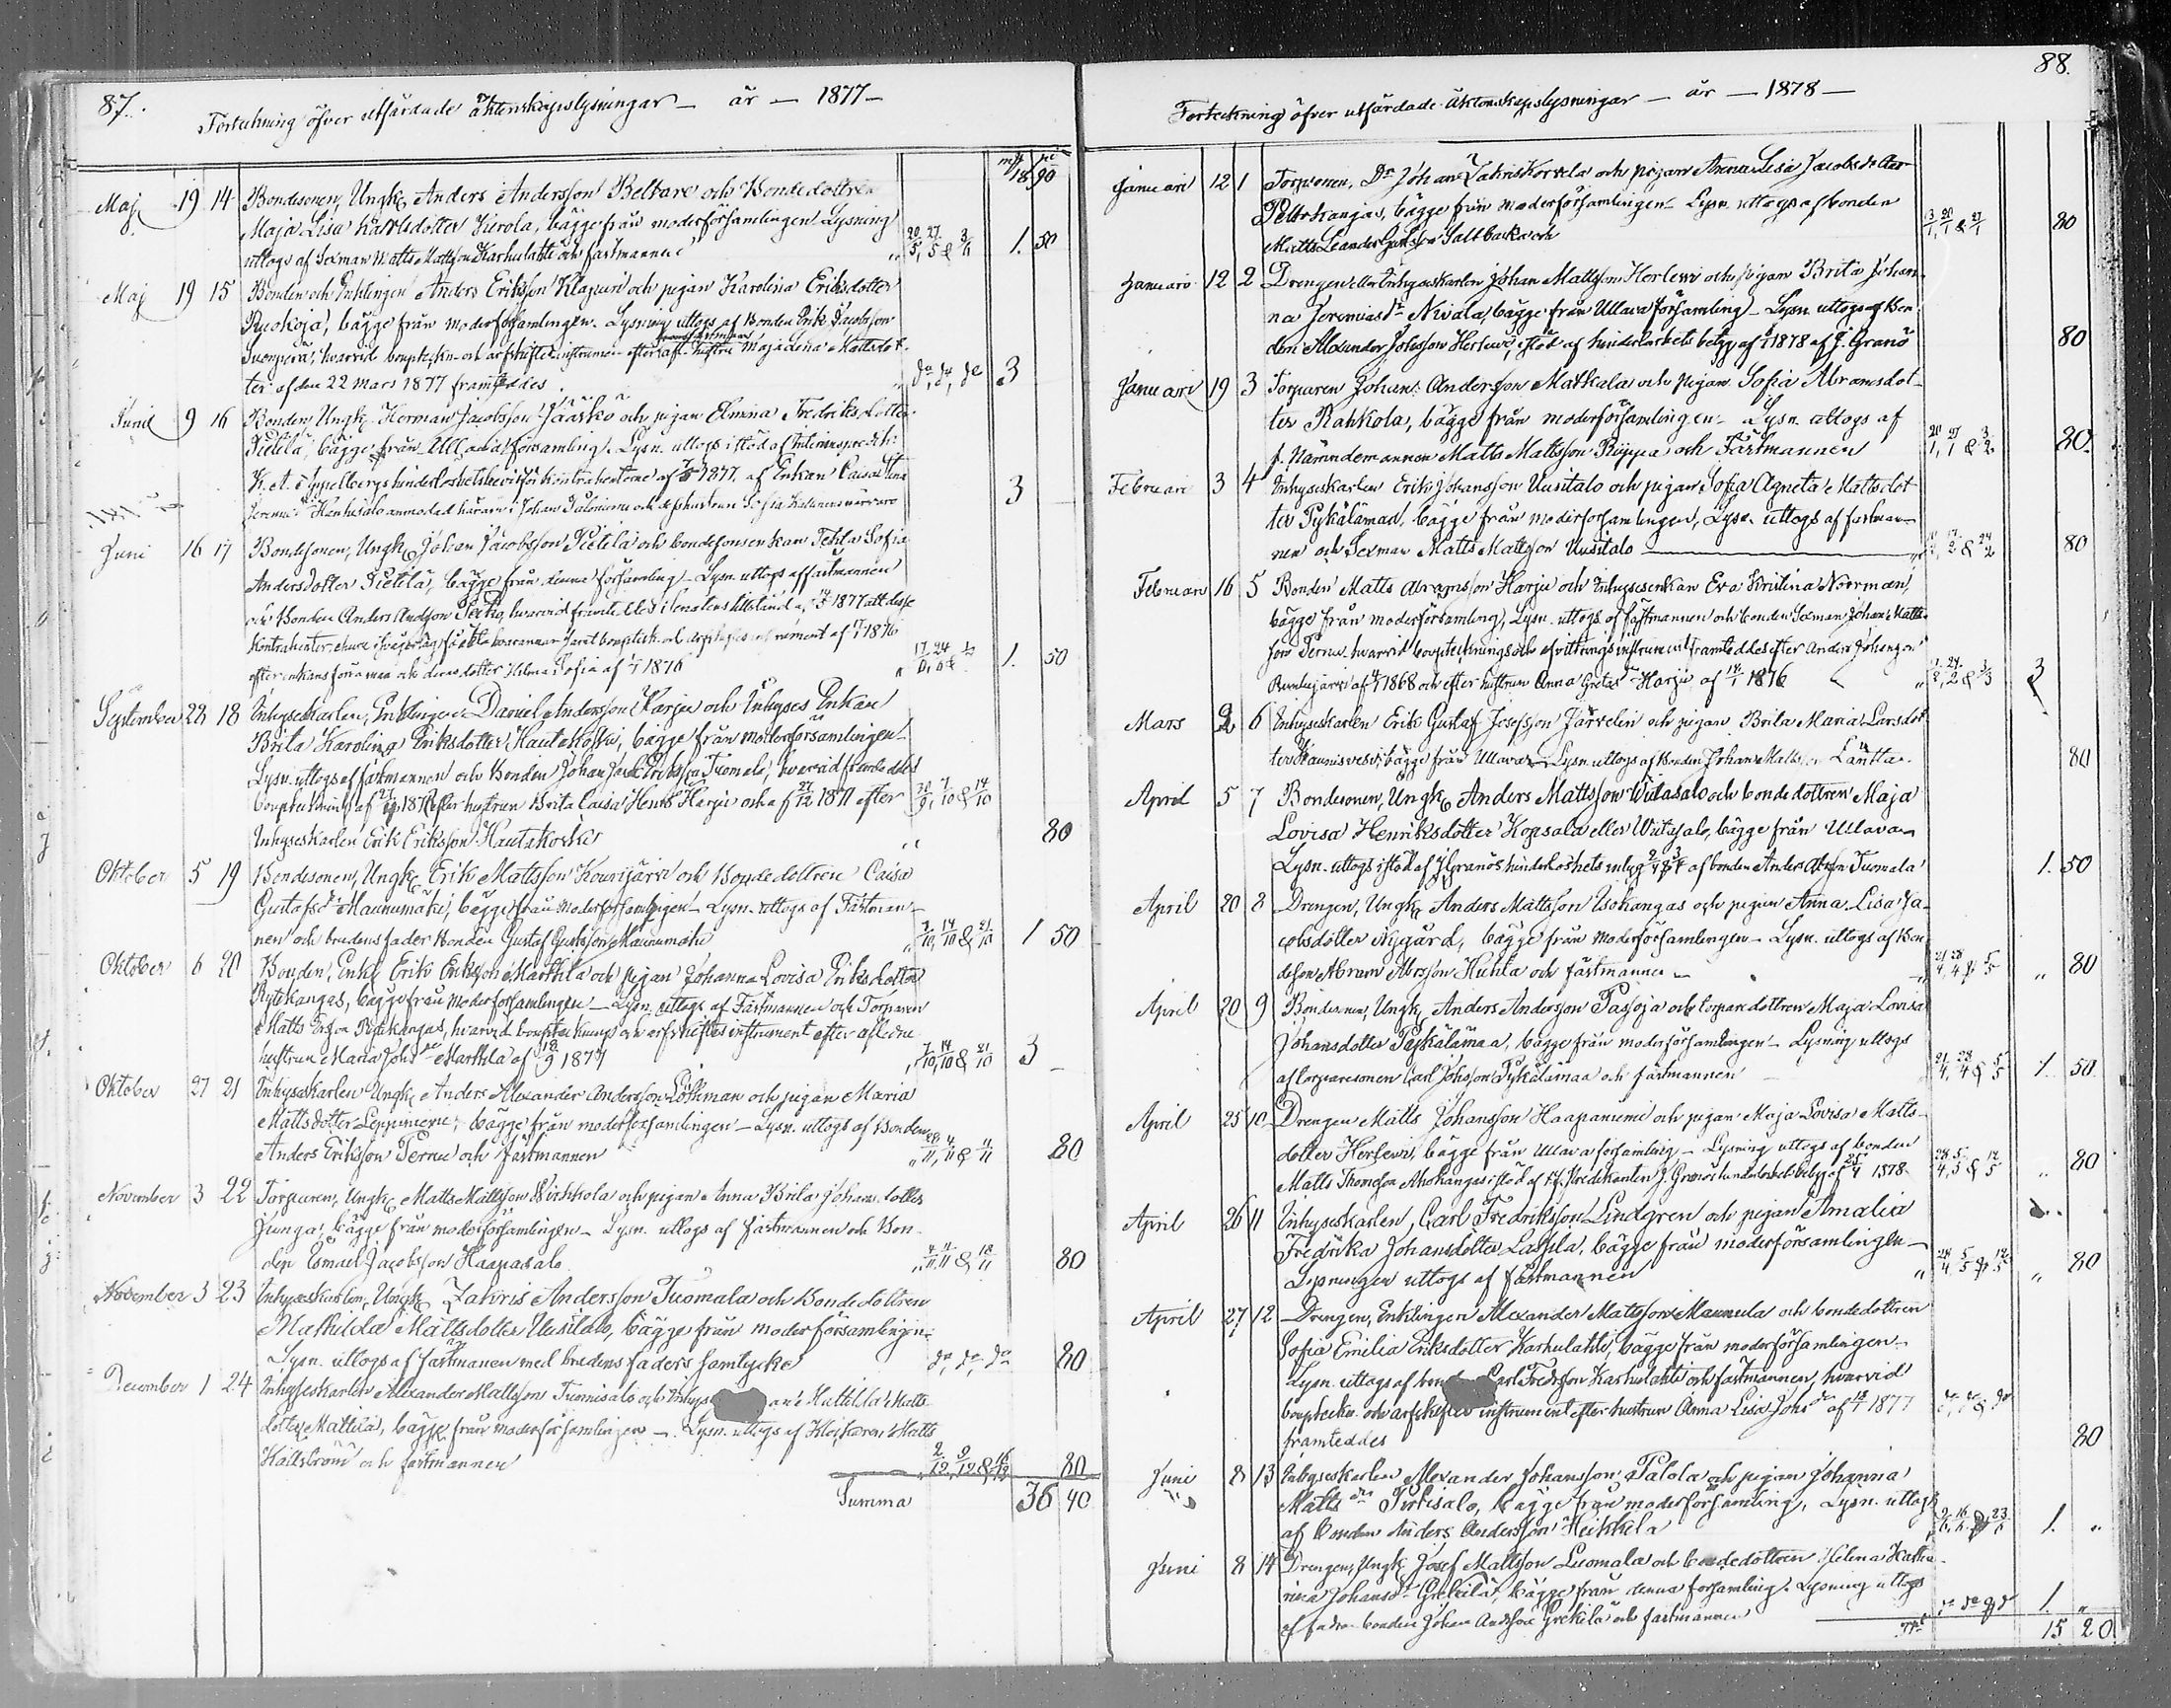 87.
Förteckning öfver utfärdade äktenskapslysningar — år — 1877 —
18 90
Maj 19 14 Bondesonen, Ungk. Anders Andersson Beltare och Bondedottren
Maja Lisa Karlsdotter Kurola, bägge från moderförsamlingen Lysning
uttogs af Sexman Matts Mattsson Karhulahti och fästmannen 20/5, 27/5 & 3/6 1. 50
Maj 19 15 Bonden och Enklingen Anders Eriksson Klapuri och pigan Karolina Eriksdotter
Ruokoja, bägge från moderförsamlingen. Lysning uttogs af Bonden Erik Jacobsson
hvarvid bouptekn. och arfskiftesinstrument efter afl. hustru Majalena Mattsdot-
ter af den 22 Mars 1877 framteddes. do, do, do 3
Juni 9 16 Bonden, Ungk. Herman Jacobsson Jääskö och pigan Elmina Fredriksdotter
Pietilä, bägge från Ullava församling. Lysn. uttogs i stöd af
hinderlöshetsbevis för kontrahenterne af 1877. af Enkan Caisa Lena
3
Juni 16 17 Bondesonen, Ungk. Johan Jacobsson Pietilä och bondesonsenkan Tekla Sofia
Andersdotter Pietilä, bägge från denna församling. Lysn. uttogs af fästmannen
och Bonden Anders Andsson hvarvid framteddes Senatens tillstånd af 1877 att desse
Kontrahenter af 1876
efter enkans förra man och deras dotter Helma Sofia af 1876 17, 24 1. 50
September 28 18 Inhysekarlen, Enklingen Daniel Andersson Karju och Inhyses Enkan
Brita Karolina Eriksdotter Hautakoski, bägge från moderförsamlingen
Lysn. uttogs af fästmannen och Bonden Johan Jacob Eriksson Tuomala, hvarvid framteddes
bouptekning af 1871 efter hustrun Brita Caisa Henr. Harju och af 27/12 1871 efter 30/9, 7/10 & 14/10
Inhyseskarlen Erik Eriksson Hautakoski 80
Oktober 5 19 Bondesonen, Ungk. Erik Mattsson Kourijärvi och Bondedottren Caisa
Gustafsdr. Maunumäki, bägge från moderförsamlingen. Lysn. uttogs af Fästman-
nen och brudens fader Bonden Gustaf Gustsson Maunumäki 7/10, 14/10 & 21/10 1 50
Oktober 6 20 Bonden, Enkl. Erik Eriksson Markkla och pigan Johanna Lovisa Eriksdotter
Rytikangas, bägge från moderförsamlingen — Lysn. uttogs af Fästmannen och Torparen
Matts Ersson Rytikangas, hvarvid bouptecknings och arfskiftesinstrument efter aflidne
hustrun Maria Johsdr Markkla af 18/9 1877 7/10, 14/10 & 21/10 3 —
Oktober 27 21 Inhyseskarlen Ungk. Anders Alexander Andersson Löthman och pigan Maria
Mattsdotter Leppiniemi, bägge från moderförsamlingen — Lysn. uttogs af Bonden
Anders Eriksson Terne och fästmannen 28, 4/11 & 11/11 80
November 3 22 Torparen, Ungk. Matts Mattsson Wirkkola och pigan Anna Brita Johansdotter
Junga, bägge från moderförsamlingen — Lysn. uttogs af fästmannen och Bon-
den Ismael Jacobsson Haapasalo 4/11, 11/11 & 18/11 80
November 3 23 Inhyseskarlen, Ungk. Zakris Andersson Tuomala och Bondedottren
Mathilda Mattsdotter Uusitalo, bägge från moderförsamlingen.
Lysn. uttogs af fästmannen med brudens faders samtycke do, do, do 80
December 1 24 Inhyseskarlen Alexander Mattsson Tuomisalo och Inhys
dotter Mattila, bägge från moderförsamlingen — Lysn. uttogs af Klockaren Matts
Hällström och fästmannen 2/12, 9/12 & 16/12 80
Summa 36 40
88.
Förteckning öfver utfärdade äktenskapslysningar — år — 1878 —
Januari 12 1 Torparen, Dr. Johan Zakrisson Korvela och pigan Anna Lisa Jacobsdotter
Peltokangas, bägge från moderförsamlingen. Lysn. uttogs af bonden
Matts Leander Saltbacka och 13/1, 20/1 & 27/1 80
Januari 12 2 Drengen eller Inhyseskarlen Johan Mattsson Herlevi och pigan Brita Johan-
na Jeremiasdr Nivala, bägge från Ullava församling. Lysn. uttogs af Bon-
den Alexander Johsson Herlevi, i stöd af hinderlöshets betyg af 1878 af J. Granö 80
Januari 19 3 Torparen Johan Andersson Matkala och pigan Sofia Abramsdot-
ter Rahkola, bägge från moderförsamlingen. Lysn. uttogs af
f. Nämndemannen Matts Mattsson Riippa och Fästmannen 20/1, 27/1 & 3/2 80.
Februari 3 4 Inhyseskarlen Erik Johansson Uusitalo och pigan Sofia Agneta Mattsdot-
ter Pykälämaa, bägge från moderförsamlingen, Lysn. uttogs af fästman-
nen och Sexman Matts Mattsson Uusitalo — 17/2 & 24/2 80
Februari 16 5 Bonden Matts Abramsson Harju och Inhysesenkan Eva Kristina Norrman,
bägge från moderförsamling, Lysn. uttogs af fästmannen och bonden Sexman Johan Matts-
son Terne, hvarvid bouptecknings och afvittringsinstrument framteddes efter Anders Johansson
af 1868 och efter hustrun Anna Greta Harju af 14/1 1876 3
Mars 2 6 Inhyseskarlen Erik Gustaf Josefsson Järvelin och pigan Brita Maria Larsdot-
ter Kaunisvesi, bägge från Ullava — Lysn. uttogs af Bonden Johan Matts. Läntta. 80
April 5 7 Bondesonen, Ungk. Anders Mattsson Wiitasalo och bondedottren Maja
Lovisa Henriksdotter Kopsala eller Wiitasalo, bägge från Ullava
Lysn. uttogs i stöd af J. Granös hinderlöshets intyg af bonden Anders Tuomala 1. 50
April 20 8 Drengen, Ungk. Anders Mattsson Isokangas och pigan Anna Lisa Ja-
cobsdotter Nygård, bägge från moderförsamlingen — Lysn. uttogs af Bon-
deson Abram Abrsson Huhta och fästmannen — 21/4, 28/4 & 5/5 „ 80
April 20 9 Bondesonen, Ungk. Anders Andersson Pasoja och torparedottren Maja Lovisa
Johansdotter Pykälämaa, bägge från moderförsamlingen — Lysning uttogs
af torparesonen Carl Johsson Pykälämaa och fästmannen 21/4, 28/4 & 5/5 1. 50.
April 25 10 Drengen Matts Johansson Haapaniemi och pigan Maja Lovisa Matts-
dotter Herlevi, bägge från Ullava församling — Lysning uttogs af bonden
Matts Thomsson Ahokangas i stöd af Predikanten J. Granös hinderlöshetsbetyg af 25/4 1878. 28/4, 5/5 & 12/5 „ 80
April 26 11 Inhyseskarlen, Carl Fredriksson Lindgren och pigan Amalia
Fredrika Johansdotter Laspla, bägge från moderförsamlingen —
Lysningen uttogs af fästmannen 28/4, 5/5 & 12/5 „ 80
April 27 12 Drengen, Enklingen Alexander Mattsson Maunula och bondedottren
Sofia Emilia Eriksdotter Karhulahti, bägge från moderförsamlingen —
Lysn. uttogs af Carl Fredrsson Karhulahti och fästmannen, hvarvid
bouptekn. och arfskiftes instrument efter hustrun Anna Lisa Johsdr af 1877 do, do & do
framteddes 80
Juni 8 13 Inhyseskarlen Alexander Johansson Palola och pigan Johanna
Mattsdr Pirkisalo, bägge från moderförsamling, Lysn. uttogs
af bonden Anders Andersson Heikkilä 9/6, 16/6 & 23/6 1. „
Juni 8 14 Drengen, Ungk. Josef Mattsson Luomala och bondedottren Helena Katha-
rina Johansdr Grekilä, bägge från denna församling. Lysning uttogs
af fadren bonden Johan Andsson Grekilä och fästmannen do do & do 1. „
15 20